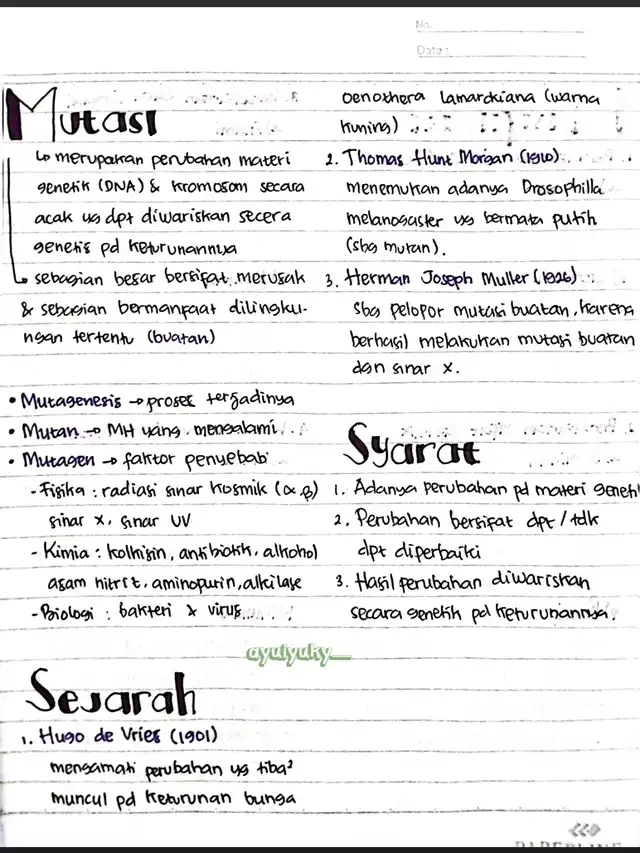 No.
Date:
Mutasi
↳ merupakan perubahan materi
genetik (DNA) & kromosom secara
acak yg dpt diwariskan secera
genetis pd keturunannya
↳ sebagian besar bersifat merusak
& sebagian bermanfaat dilingku-
ngan tertentu (buatan)
• Mutagenesis → proses terjadinya
• Mutan → MH yang mengalami
• Mutagen → faktor penyebab
- Fisika : radiasi sinar kosmik (α, β)
sinar x, sinar UV
- Kimia : kolkisin, antibiotik, alkohol
asam nitrit, aminopurin, alkilase
- Biologi : bakteri & virus
Sejarah
1. Hugo de Vries (1901)
mengamati perubahan yg tiba²
muncul pd keturunan bunga
oenothera lamarckiana (warna
kuning)
2. Thomas Hunt Morgan (1910)
menemukan adanya Drosophilla
melanogaster yg bermata putih
(sbg mutan).
3. Herman Joseph Muller (1926)
sbg pelopor mutasi buatan, karena
berhasil melakukan mutasi buatan
dgn sinar x.
Syarat
1. Adanya perubahan pd materi genetik
2. Perubahan bersifat dpt / tdk
dpt diperbaiki
3. Hasil perubahan diwariskan
secara genetik pd keturunannya.
ayulyuky__
PAPERLINE